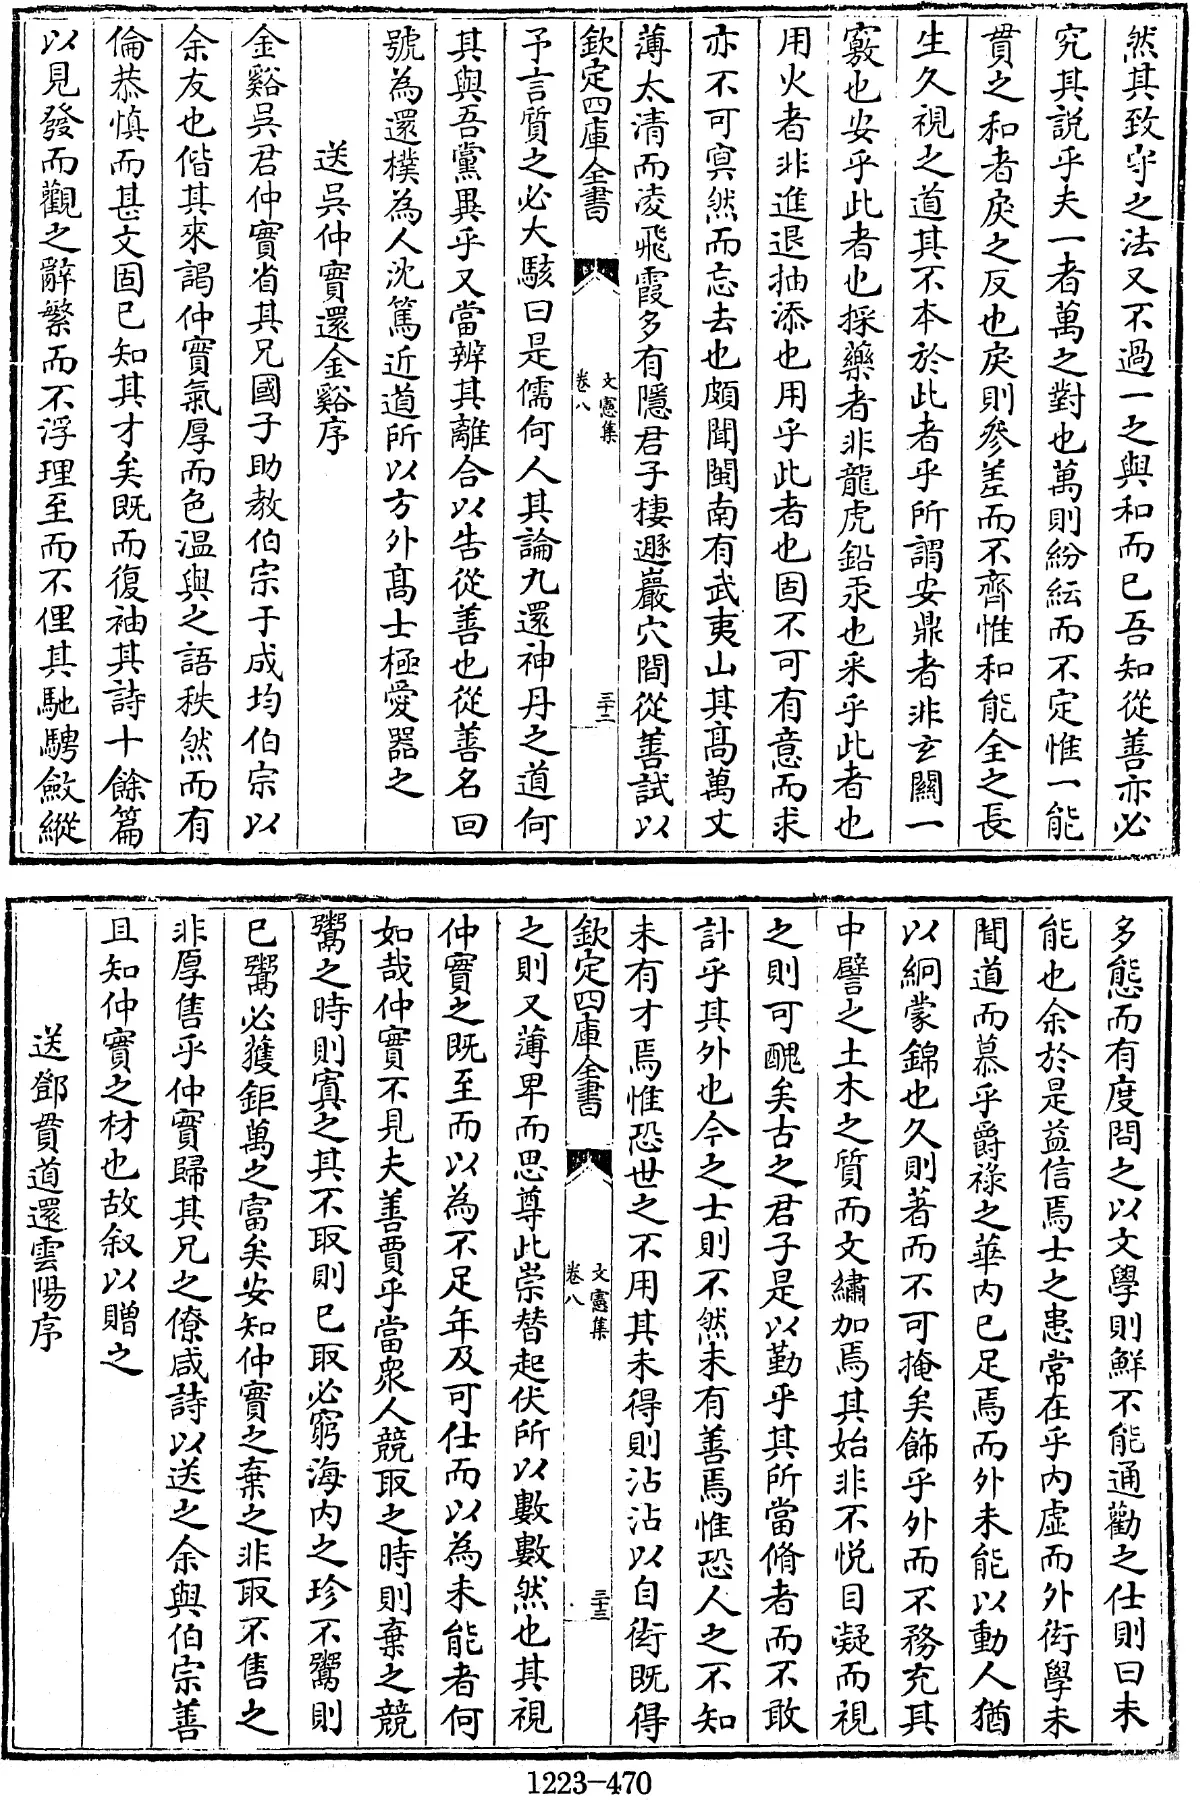 然其致守之法又不過一之與和而已吾知從善亦必
究其説乎夫一者萬之對也萬則紛紜而不定惟一能
貫之和者戾之反也戾則參差而不齊惟和能全之長
生久視之道其不本於此者乎所謂安鼎者非玄關一
竅也安乎此者也採藥者非龍虎鉛汞也采乎此者也
用火者非進退抽添也用乎此者也固不可有意而求
亦不可寘然而忘去也頗聞閩南有武夷山其髙萬丈
薄太清而凌飛霞多有隱君子棲遯巖穴間從善試以
欽定四庫全書
文憲集
卷八
三十二
予言質之必大駭曰是儒何人其論九還神丹之道何
其與吾黨異乎又當辨其離合以告從善也從善名回
號為還樸為人沈篤近道所以方外髙士極愛器之
送吳仲實還金谿序
金谿吳君仲實省其兄國子助教伯宗于成均伯宗以
余友也偕其來謁仲實氣厚而色温與之語秩然而有
倫恭慎而甚文固已知其才矣既而復袖其詩十餘篇
以見發而觀之辭繁而不浮理至而不俚其馳騁斂縱
多態而有度問之以文學則鮮不能通勸之仕則曰未
能也余於是益信焉士之患常在乎内虛而外衒學未
聞道而慕乎爵祿之華内已足焉而外未能以動人猶
以絅蒙錦也久則著而不可掩矣飾乎外而不務充其
中譬之土木之質而文繡加焉其始非不悦目凝而視
之則可醜矣古之君子是以勤乎其所當脩者而不敢
計乎其外也今之士則不然未有善焉惟恐人之不知
未有才焉惟恐世之不用其未得則沾沾以自衒既得
欽定四庫全書
文憲集
卷八
三十三
之則又薄卑而思尊此崇替起伏所以數數然也其視
仲實之既至而以為不足年及可仕而以為未能者何
如哉仲實不見夫善賈乎當衆人競取之時則棄之競
鬻之時則寘之其不取則已取必窮海内之珍不鬻則
已鬻必獲鉅萬之富矣安知仲實之棄之非取不售之
非厚售乎仲實歸其兄之僚咸詩以送之余與伯宗善
且知仲實之材也故叙以贈之
送鄧貫道還雲陽序
1223-470